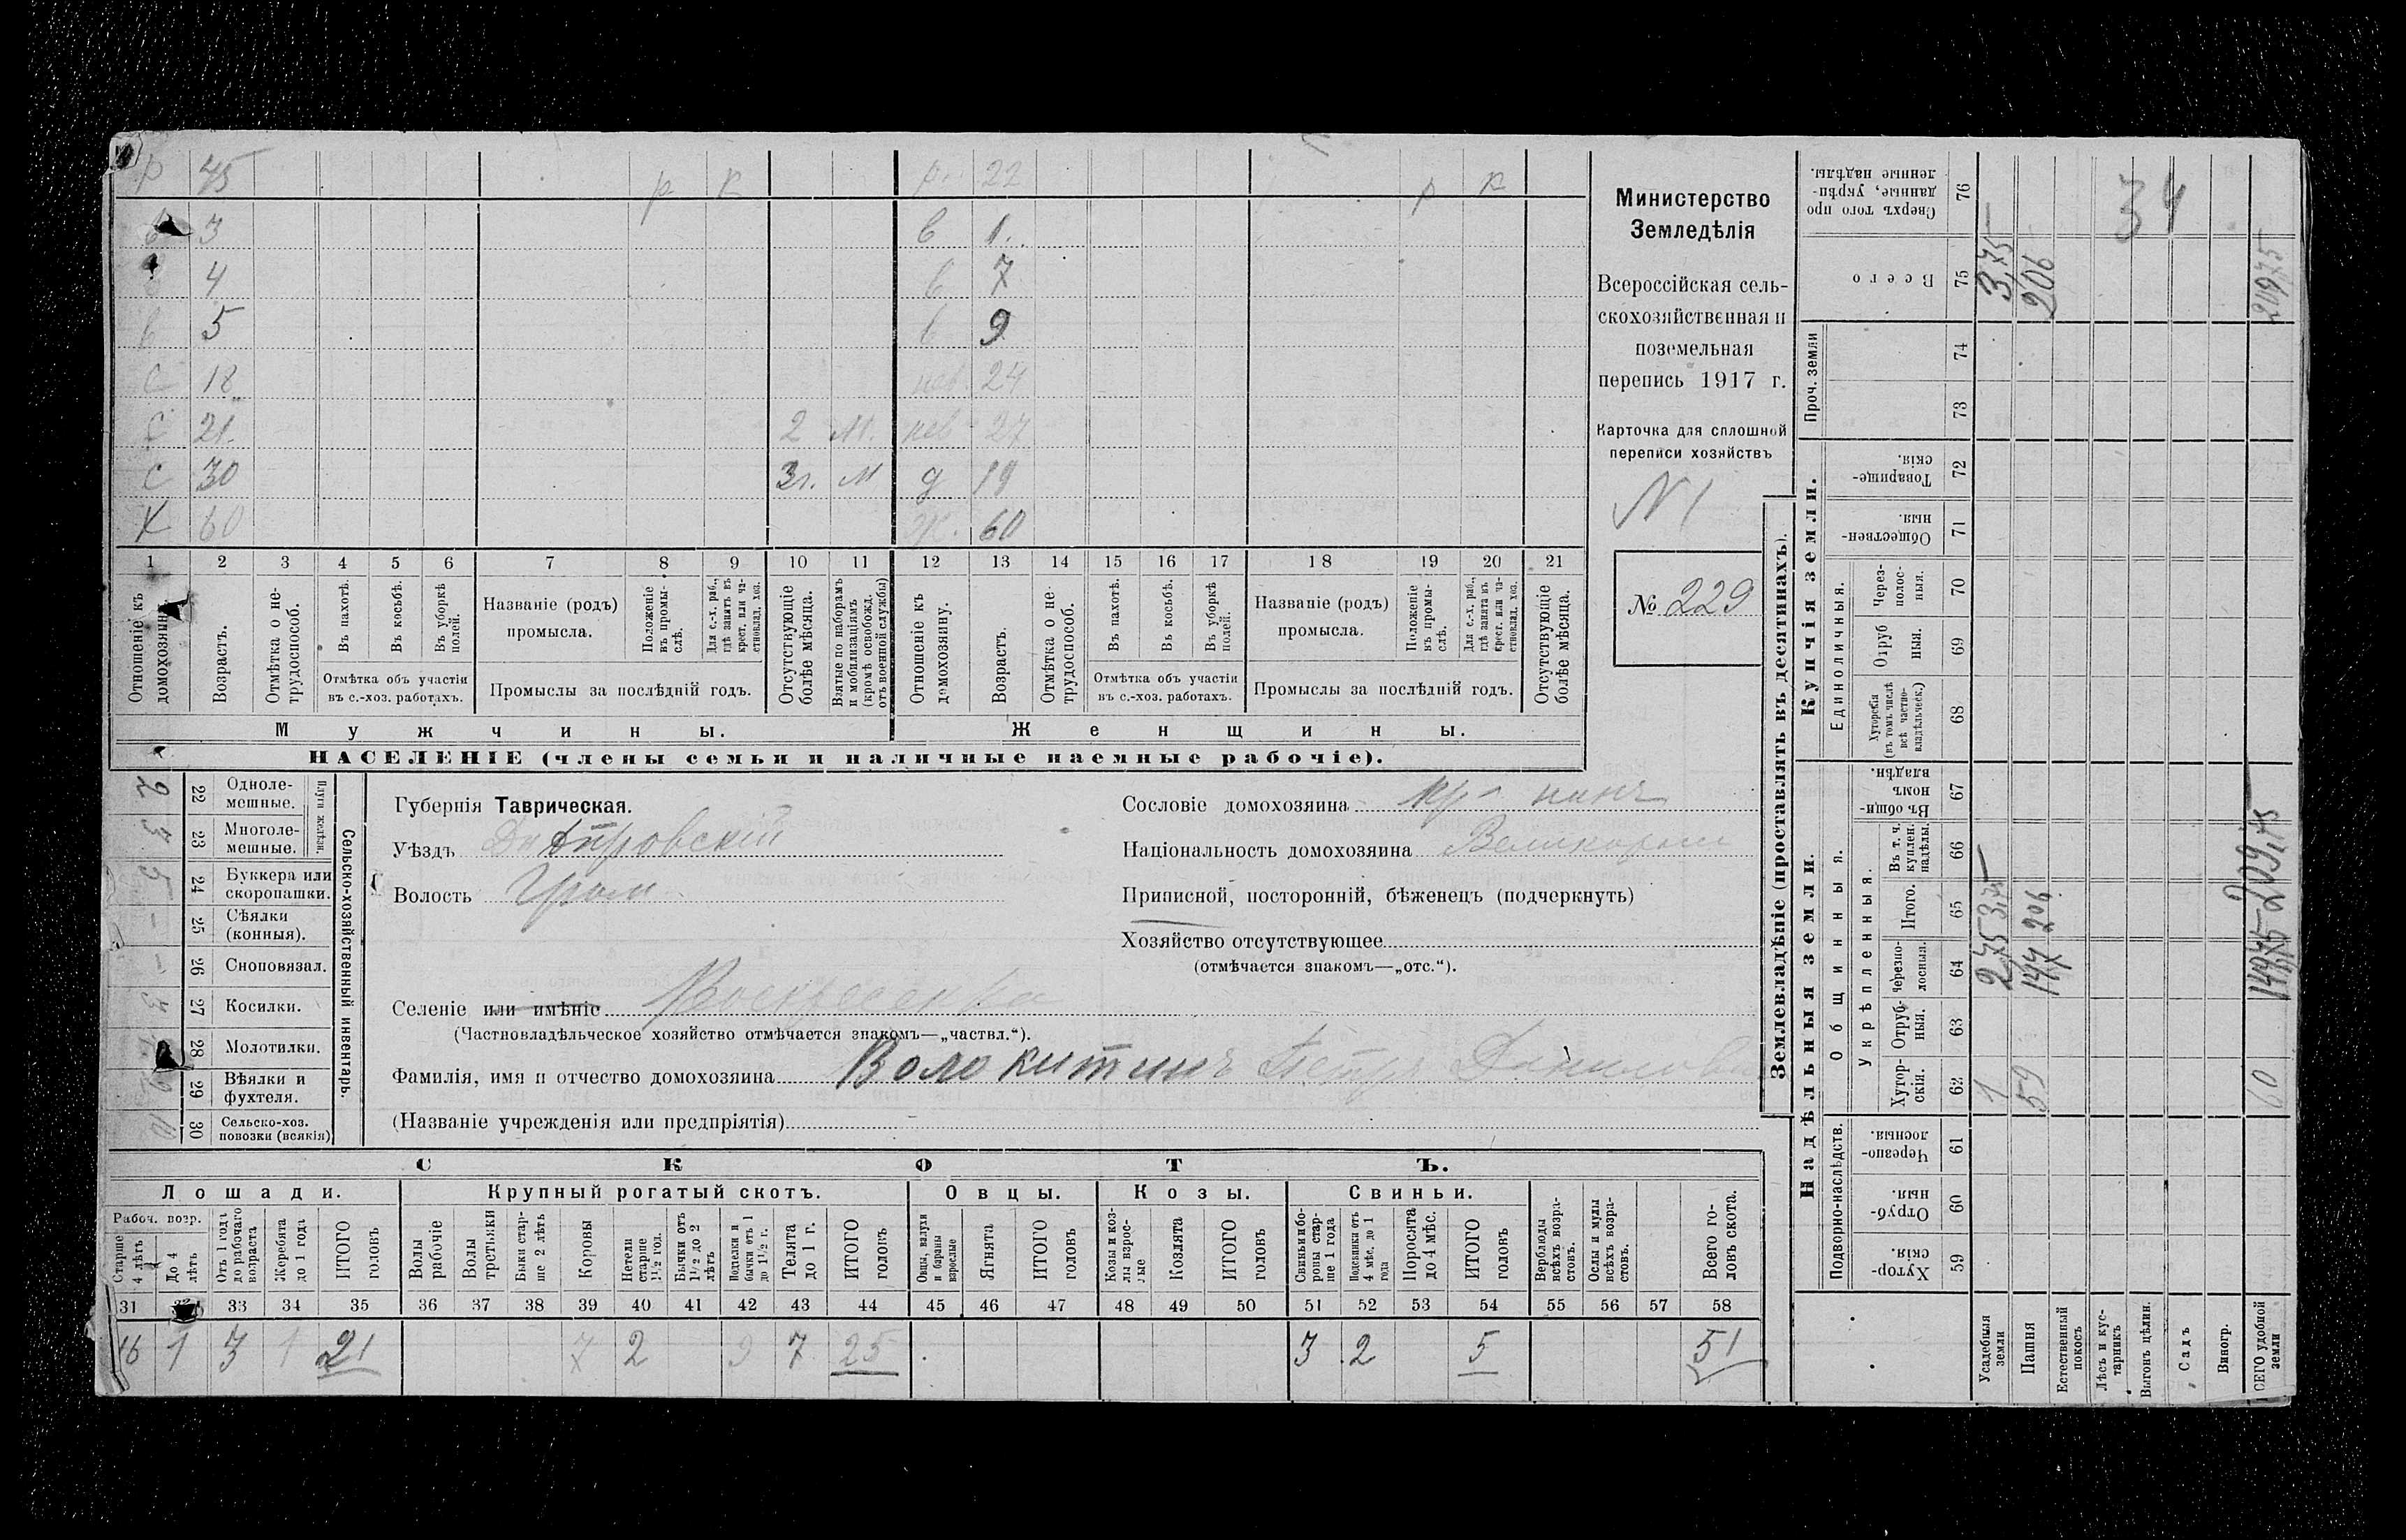 р 45 р к р. 22 р к
в 3 в 1.
4 в 7
в 5 в 9
с 18 нев. 24
с 21. 2 м. нев 27
с 30 3г. м д 19
х 60 ж. 60
1 2 3 4 5 6 7 8 9 10 11 12 13 14 15 16 17 18 19 20 21
Отношеніе къ домохозяину.
Возрастъ.
Отмѣтка о нетрудоспособ.
Въ пахотѣ.
Въ косьбѣ.
Въ уборкѣ полей.
Отмѣтка объ участіи въ с.-хоз. работахъ.
Названіе (родъ) промысла.
Положеніе въ промыслѣ.
Для с.-х. раб., гдѣ занятъ въ крест. или частновлад. хоз.
Промыслы за послѣдній годъ.
Отсутствующіе болѣе мѣсяца.
Взятые по наборамъ и мобилизаціямъ (кромѣ освобожд. отъ военной службы)
Отношеніе къ домохозяину.
Возрастъ.
Отмѣтка о нетрудоспособ.
Въ пахотѣ.
Въ косьбѣ.
Въ уборкѣ полей.
Отмѣтка объ участіи въ с.-хоз. работахъ.
Названіе (родъ) промысла.
Положеніе въ промыслѣ.
Для с.-х. раб., гдѣ занята въ крест. или частновлад. хоз.
Промыслы за послѣдній годъ.
Отсутствующіе болѣе мѣсяца.
Мужчины. Женщины.
НАСЕЛЕНІЕ (члены семьи и наличные наемные рабочіе).
Министерство
Земледѣлія
Всероссійская сель-
скохозяйственная и
поземельная
перепись 1917 г.
Карточка для сплошной
переписи хозяйствъ
N 1
№ 229
Сельско-хозяйственный инвентарь.
Плуги желѣзн.
22 Одноле-
мешные. 2
23 Многоле-
мешные. 3
24 Буккера или
скоропашки. 5
25 Сѣялки
(конныя). –
26 Сноповязал. –
27 Косилки. 3
28 Молотилки.
29 Вѣялки и
фухтеля.
30 Сельско-хоз.
повозки (всякія)
Губернія Таврическая.
Уѣздъ Днѣпровскій
Волость
Сословіе домохозяина
Національность домохозяина Великоросс
Приписной, посторонній, бѣженецъ (подчеркнуть)
Хозяйство отсутствующее
(отмѣчается знакомъ—„отс.“).
Селеніе или имѣніе Воскресенка
(Частновладѣльческое хозяйство отмѣчается знакомъ—„частвл.“).
Фамилія, имя и отчество домохозяина Волокитинъ Петръ Данилов
(Названіе учрежденія или предпріятія)
СКОТЪ.
Лошади. Крупный рогатый скотъ. Овцы. Козы. Свиньи.
Рабоч. возр.
Старше 4 лѣтъ
До 4 лѣтъ
Отъ 1 года до рабочаго возраста
Жеребята до 1 года
ИТОГО головъ
Волы рабочіе
Волы третьяки
Быки старше 2 лѣтъ
Коровы
Нетели старше 1½ год.
Бычки отъ 1½ до 2 лѣтъ
Подтелки и бычки отъ 1 до 1½ г.
Телята до 1 г.
ИТОГО головъ
Овцы, валухи и бараны взрослые
Ягнята
ИТОГО головъ
Козы и козлы взрослые
Козлята
ИТОГО головъ
Свиньи и боровы старше 1 года
Подсвинки отъ 4 мѣс. до 1 года
Поросята до 4 мѣс.
ИТОГО головъ
Верблюды всѣхъ возрастовъ.
Ослы и мулы всѣхъ возрастовъ.
Всего головъ скота.
31 33 34 35 36 37 38 39 40 41 42 43 44 45 46 47 48 49 50 51 52 53 54 55 56 57 58
16 1 3 1 21 7 2 9 7 25 3 2 5 51
Землевладѣніе (проставлять въ десятинахъ).
Надѣльныя земли. Купчія земли. Проч. земли
Подворно-наслѣдств. Общинныя. Единоличныя.
Укрѣпленныя.
Хуторскія. 59
Отрубныя. 60
Черезполосныя. 61
Хуторскія. 62
Отрубныя. 63
Черезполосныя. 64
Итого. 65
Въ т. ч. куплен. надѣлы. 66
Въ общинномъ владѣн. 67
Хуторскія (въ томъ числѣ всѣ частновладѣльческ.) 68
Отрубныя. 69
Черезполосныя. 70
Общественныя. 71
Товарищескія. 72
73
74
Всего 75
Сверхъ того проданные, укрѣпленные надѣлы. 76
Усадебныя земли 1 2,75 3,75 3,75
Пашня 59 147 206 206
Естественный покосъ
Лѣсъ и кустарникъ
Выгонъ цѣлин.
34
Садъ
Виногр.
ВСЕГО удобной земли 60 149,75 209,75 209,75